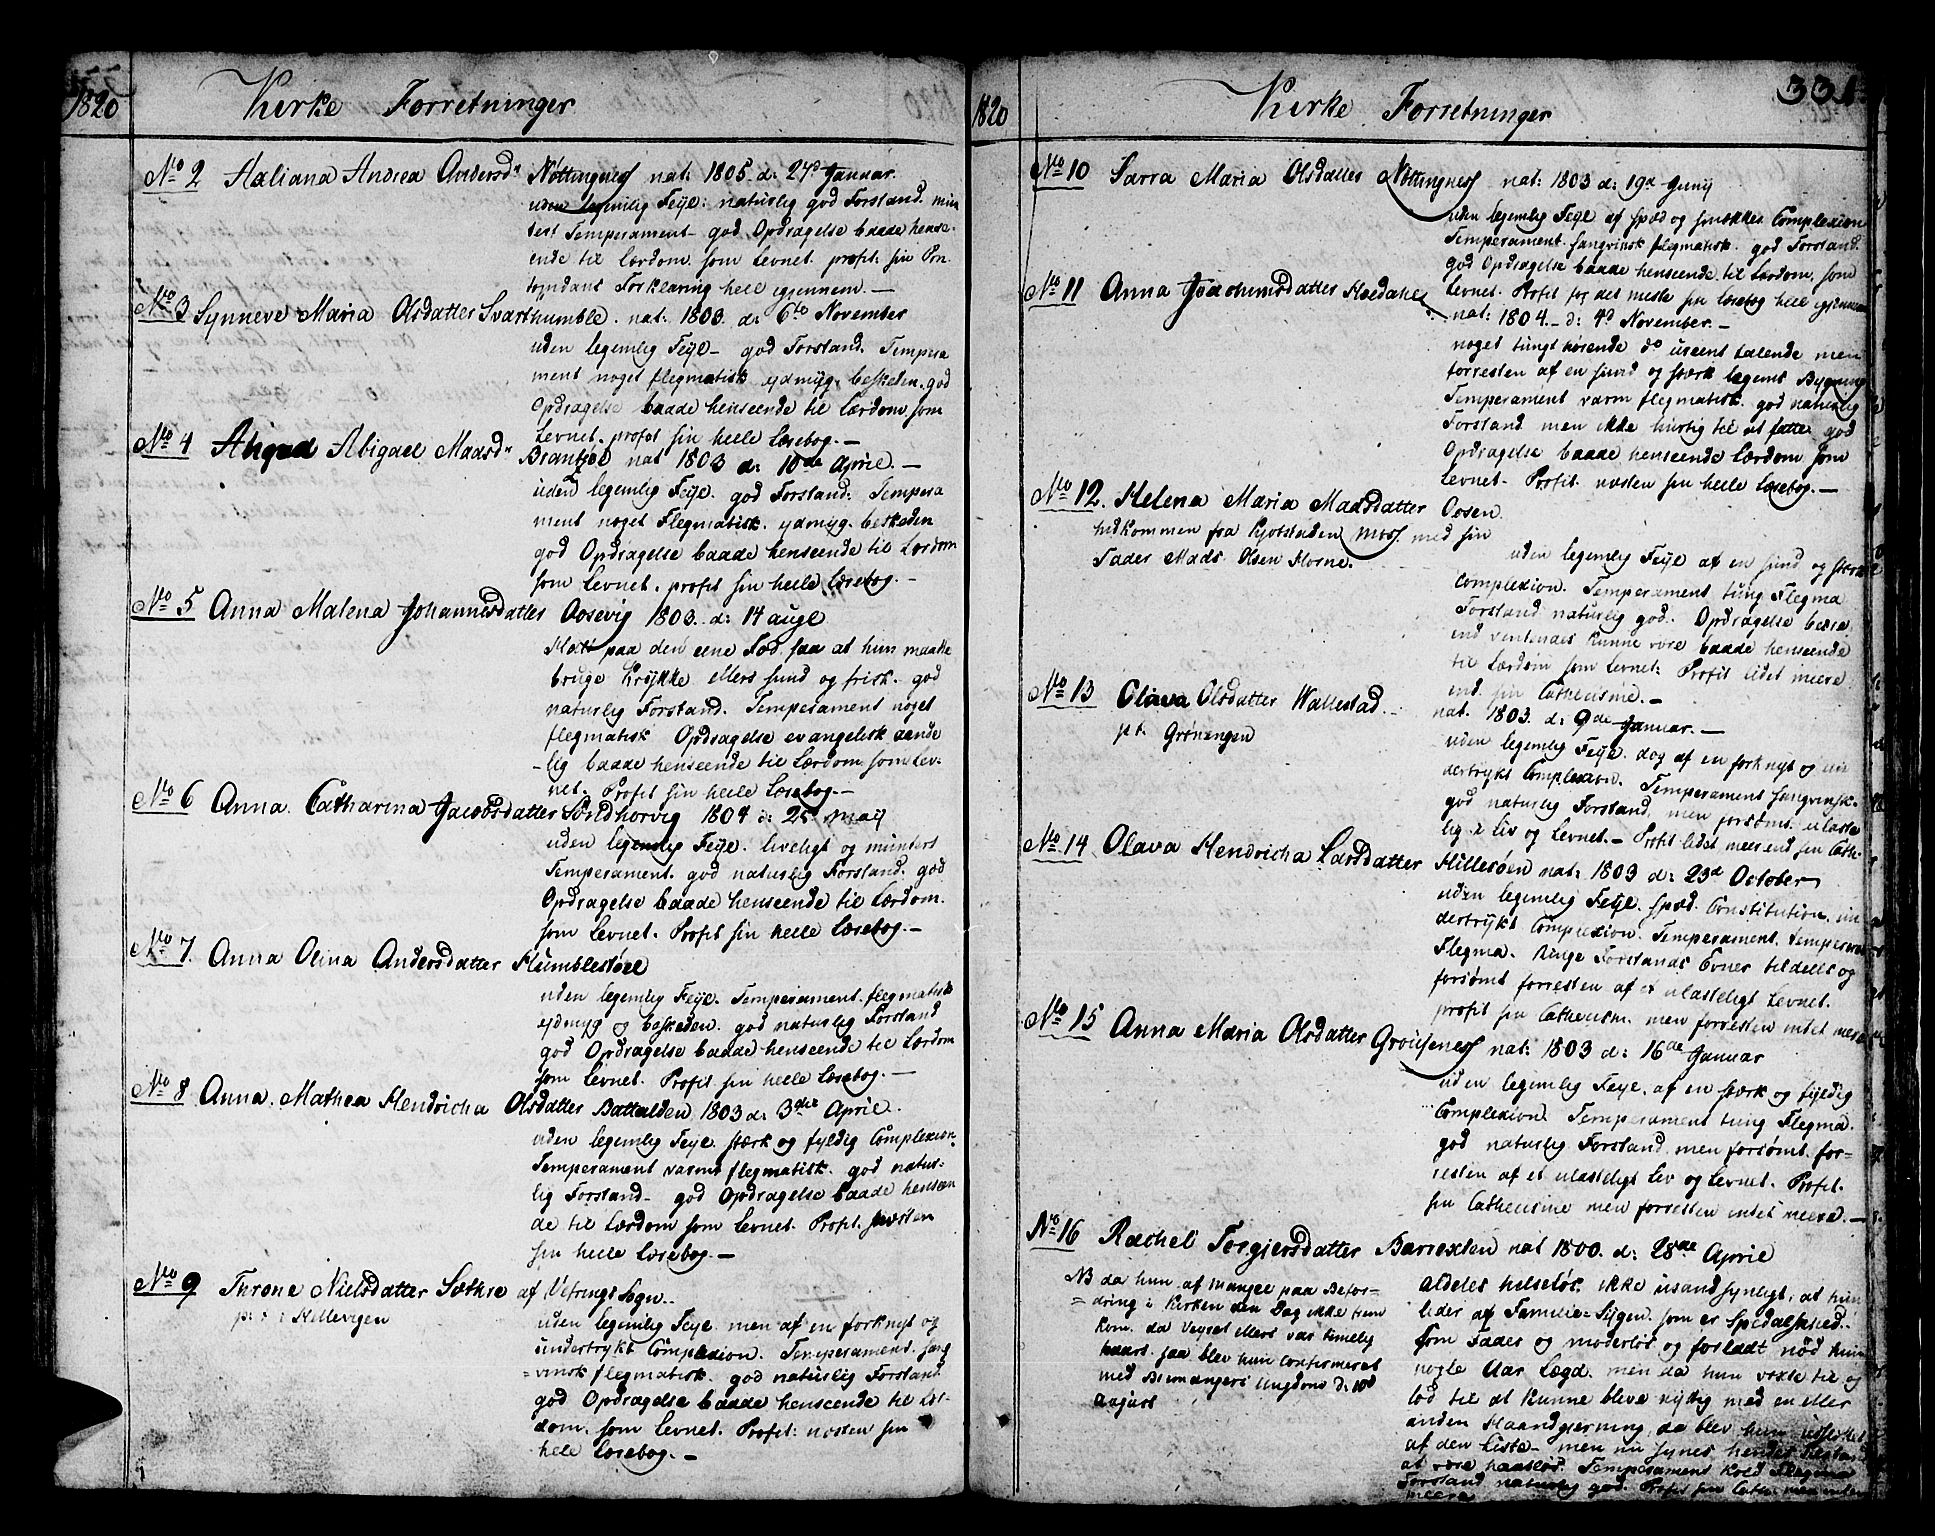 1820 Kirke Forretninger
No 2 Haliana Andrea Andersd. Nøttingnes nat: 1805. d: 27d Januar.
uden legemlig Feyl: naturlig god Forstand. mun
tert Temperament. god Opdragelse baade hense-
ende til Lærdom som Levnet. profit: sin Pon-
topidans Forklaring hele igjennem.—
No 3 Synneve Maria Olsdatter Svarthumble. nat: 1803. d: 6te November
uden legemlig Feyl— god Forstand. Tempera
ment noget flegmatisk ydmyg. beskeden. god
Opdragelse baade henseende til Lærdom som
Levnet. profit sin heele Læsebog.—
No 4 Abigael Maasd. Brantzøe nat 1803 d: 10de April.—
uden legemlig Feyl. god Forstand: Tempera
ment noget Flegmatisk. ydmyg. beskeden
god Opdragelse baade henseende til Lærdom
som Levnet. profit sin heele Læsebog.—
No 5 Anna Malena Johannesdatter Oosevig 1803. d: 14 augl
Halt paa den eene Fod, saa at hun maatte
bruge Krykke ellers sund og frisk. god
naturlig Forstand. Temperament noget
flegmatisk Opdragelse evangelisk
lig baade henseende til Lærdom som Lev-
net. Profit sin heele Læsebog.—
No 6 Anna. Catharina Jacobsdatter Sandhorvig 1804 d: 25 Maij
uden legemlig Feyl. liveligt og muntert
Temperament. god naturlig Forstand. god
Opdragelse baade henseende til Lærdom.
som Levnet. Profit sin heele Læsebog.—
No 7. Anna Olina Andersdatter Humblestøel
uden legemlig Feyl. Temperament. flegmatisk
ydmyg og beskeden. god naturlig Forstand
god Opdragelse baade henseende til Lærdom
som Levnet. Profit sin heele Læsebog.—
No 8 Anna. Mathea Hendricha Olsdatter Battalden 1803 d: 3die April.
uden legemlig Feyl stærk og fyldig Complexion.
Temperament varmt flegmatisk. god natur-
lig Forstand— god Opdragelse baade henseen
de til Lærdom som Levnet. Profit næsten
sin heele Læsebog.—
No 9 Throne Nielsdatter Sæthre af Vefrings Sogn..
p: t: i Hellevigen
uden legemlig Feyl. men af en forknyt og
undertrykt Complexion. Temperament. sang
vinsk flegmatisk. god naturlig Forstand
god Opdragelse baade henseende til Lær-
dom. som Levnet. Profit: næsten sin
hele Læsebog.—
1820 Kirke Forretninger 331
No 10 Sarra Maria Olsdatter Nøttingnes nat: 1803 d: 19d Junij
uden legemlig Feyl af spæd og smækker Complexion
Temperament. sangvinsk flegmatisk. god Forstand.
god Opdragelse baade henseende til Lærdom, som
Levnet. Profit for det meste sin Læsebog hele igjennem
No 11 Anna Joachimsdatter Hovdahl
nat: 1804.— d: 4d November.—
noget tungt hørende do useent talende men
forresten af en sund og stærk legems Bygning
Temperament varm flegmatisk. god naturlig
Forstand men ikke hurtig til at fatte god
Opdragelse baade henseende Lærdom som
Levnet. Profit. næsten sin heele Læsebog.—
No 12. Helena Maria Madsdatter Oosen.
hidkommen fra Kjøbstaden Moss. med sin
Fader Mads Olsen Horne.
uden legemlig Feyl af en sund og stærk
Complexion. Temperament tung Flegma
Forstand naturlig god. Opdragelse bedre
end ventendes kunne være baade henseende
til Lærdom som Levnet: Profit lidet meere
end. sin Cathecisme.—
No 13 Olava Olsdatter Wallestad.
pt. Grøningen
nat. 1803. d: 9de Januar.—
uden legemlig Feyl. dog af en forknyt og un
dertrykt Complexion. Temperament sangvinsk.
god naturlig Forstand, men forsømt. ulaste
lig i Liv og Levnet.— Profit lidet meer end sin Cathe.
No 14 Olava Hendricha Larsdatter Hillesøen nat: 1803 d: 23d October
uden legemlig Feyl. spæd. Constitution, un
dertrykt Complexion. Temperament.
Flegma. Ringe Forstands Evner tildeels og
forsømt forresten af et ulasteligt Levnet.
profit sin Cathecism. men forresten intet meere
No 15 Anna Maria Olsdatter Grousenes nat: 1803 d: 16de Januar
uden legemlig Feyl. af en stærk og fyldig
Complexion. Temperament tung Flegma.
god naturlig Forstand. men forsømt. for-
resten af et ulasteligt Liv og Levnet. Profit.
sin Cathecisme men forresten intet meere.—
No 16 Rachel Torgiersdatter Barrexten nat 1800. d: 28de April
NB da hun af mangel paa Befor-
dring i Kirken den Dag ikke hun
kom. da Veyret ellers var temelig
haart. saa blev hun Confirmeret
med Bremangers Ungdom d: 10d
August
aldeles helseløs. ikke usandsynligt, at hun
lider af Familie-Sygen. som er Spedalskhed.
som Fader og moderløs og forladt nød hun
nogle Aar Lægd. men da hun voxte til og
lod til at kunne blive nyttig med en eller
anden Haandgierning, da blev hun udslettet
af den Liste— men nu synes hendes Tilstand
at være haabløs. Temperament kold Flegma
Forstand naturlig god. Profit sin Cathe. men intet
meere